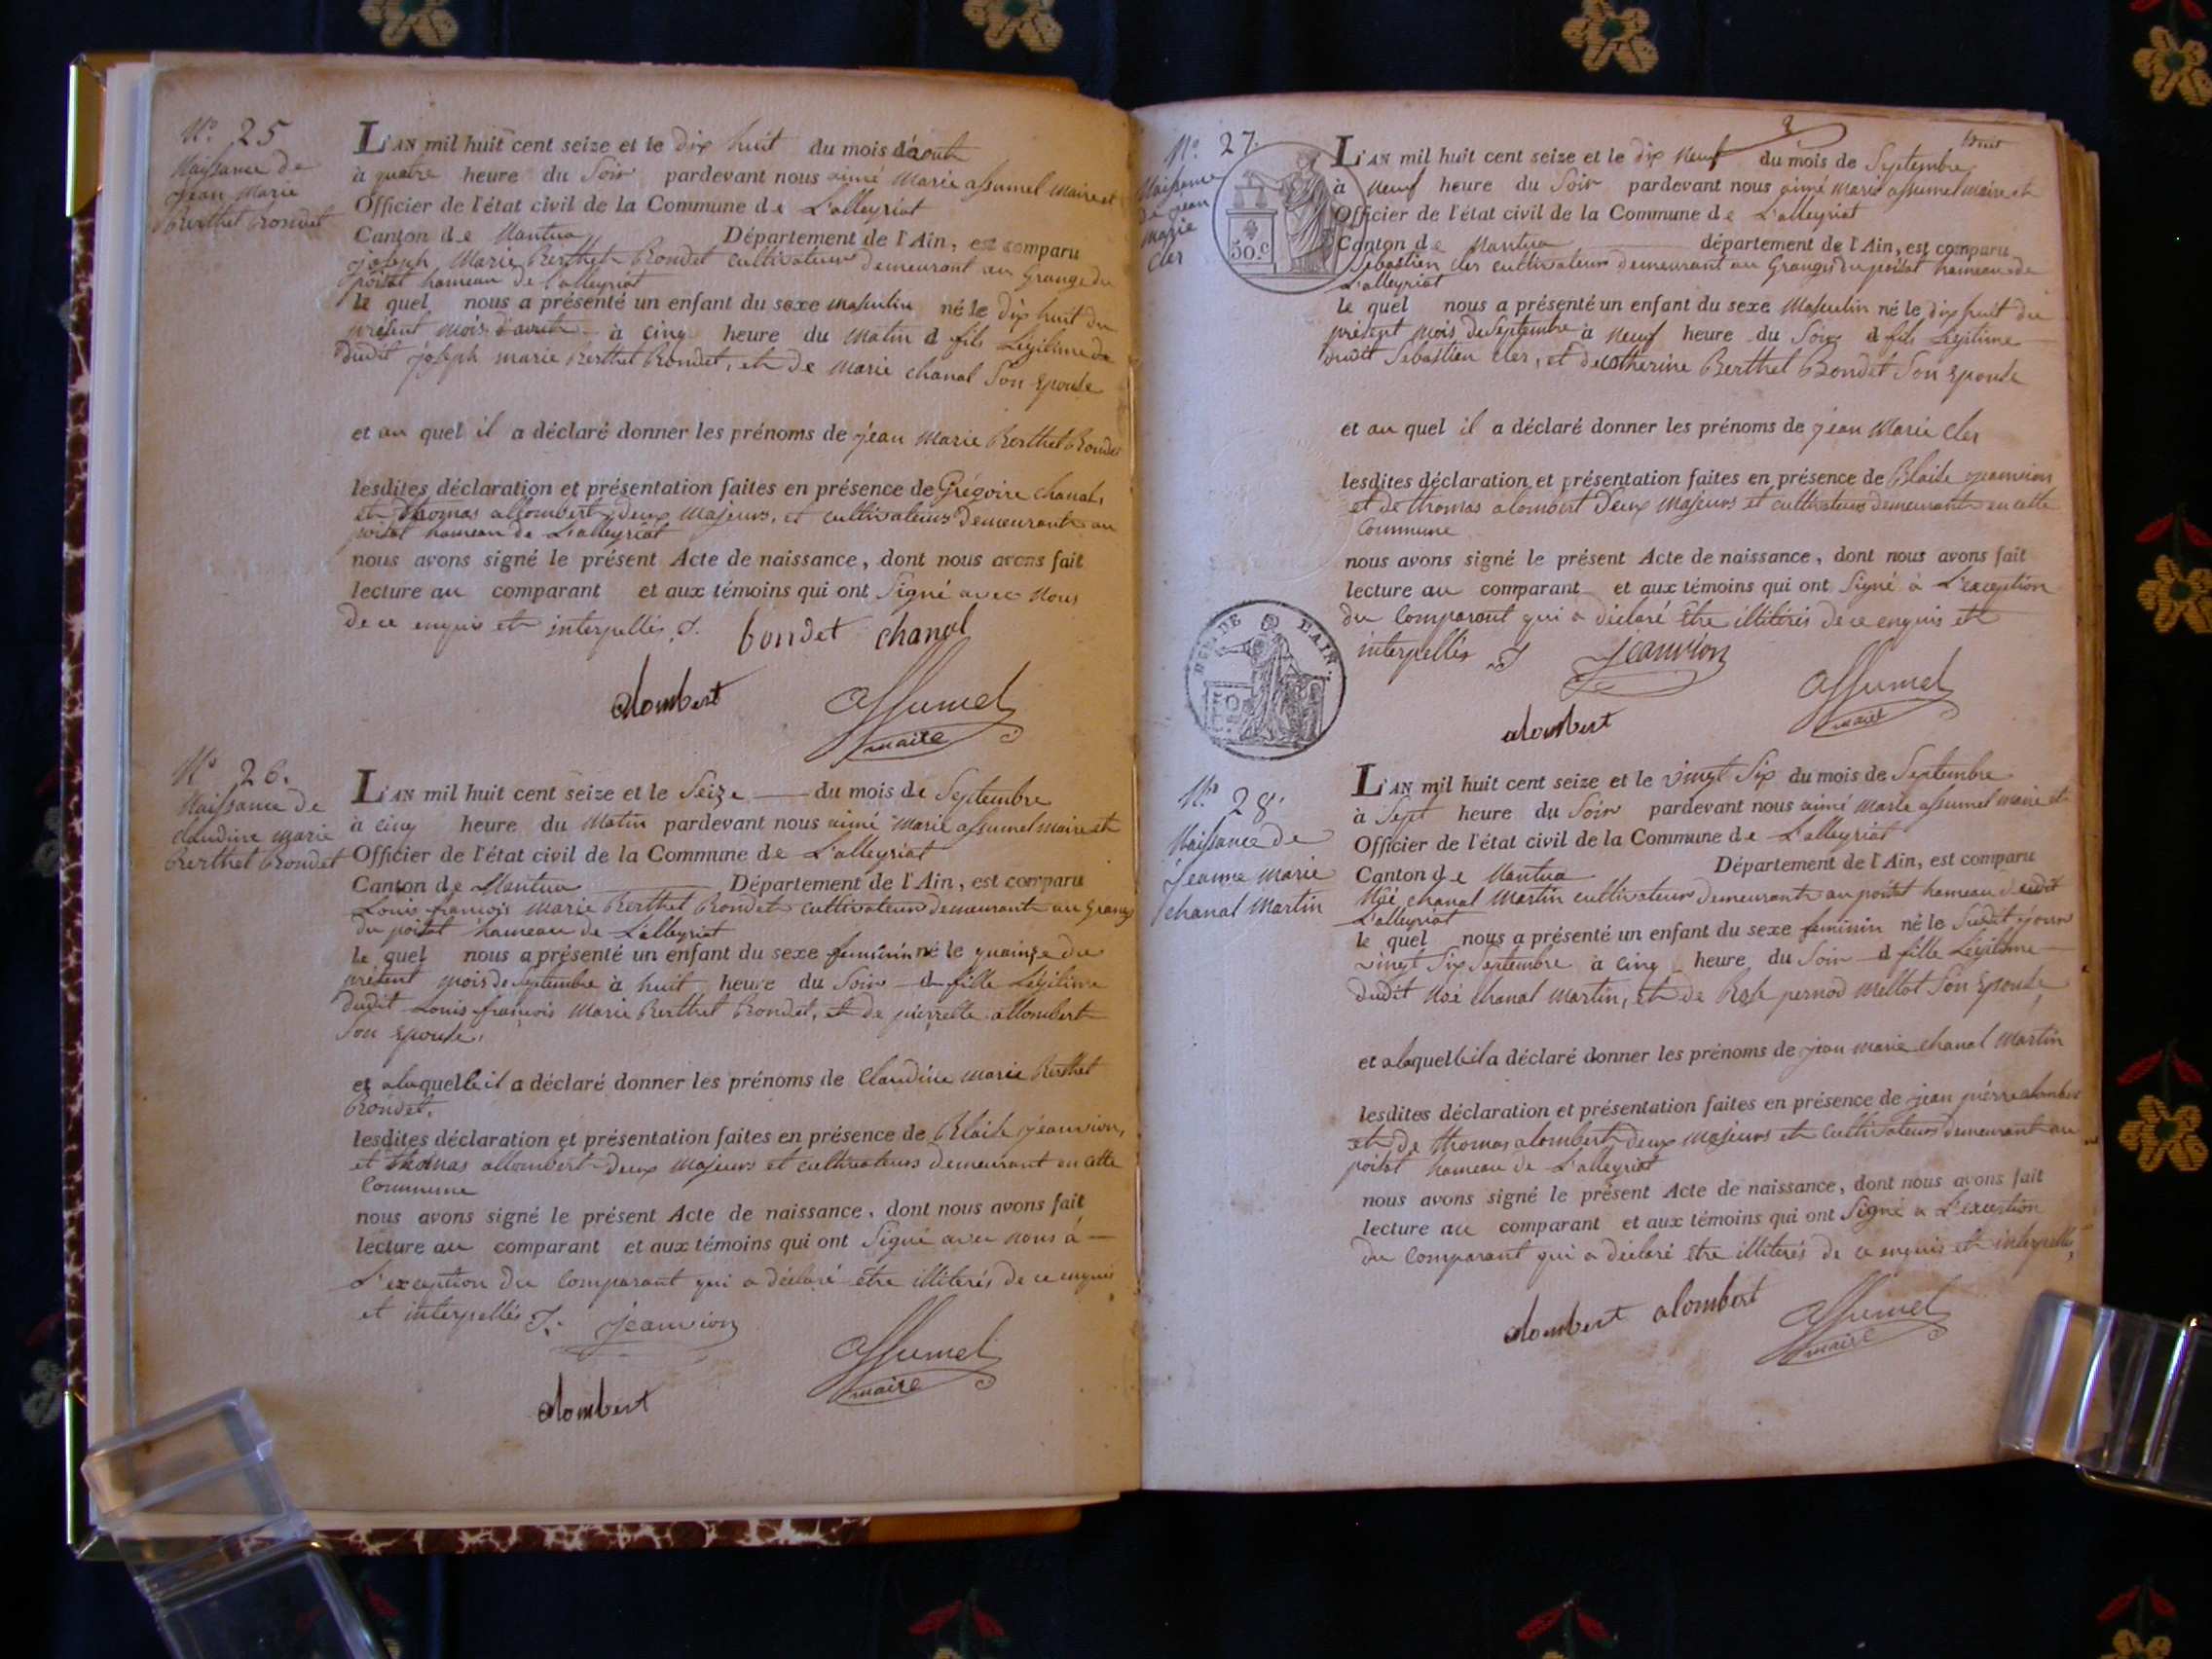 N.° 25
Naissance de
Jean Marie
Berthet Bondet
L'AN mil huit cent seize et le dix huit du mois d'aout
à quatre heure du Soir pardevant nous aimé Marie assumel maire et
Officier de l'état civil de la Commune de L'alleyriat
Canton de Nantua Département de l'Ain, est comparu
joseph Marie Berthet Bondet cultivateur demeurant au Grange du
poizat hameau de l'alleyriat
le quel nous a présenté un enfant du sexe masculin né le dix huit du
présent mois d'aout à cinq heure du matin d fils Légitime de
dudit joseph marie Berthet Bondet, et de marie chanal Son Epouse
et au quel il a déclaré donner les prénoms de jean Marie Berthet Bondet
lesdites déclaration et présentation faites en présence de Grégoire chanal,
et thomas allombert deux majeurs, et cultivateurs demeurants au
poizat hameau de L'alleyriat
nous avons signé le présent Acte de naissance, dont nous avons fait
lecture au comparant et aux témoins qui ont Signé avec Nous
de ce enquis et interpellés.
bondet chanal
alombert assumel
maire
N.° 26.
Naissance de
claudine marie
Berthet Bondet
L'AN mil huit cent seize et le Seize du mois de Septembre
à cinq heure du Matin pardevant nous aimé Marie assumel maire et
Officier de l'état civil de la Commune de L'alleyriat
Canton de Nantua Département de l'Ain, est comparu
Louis françois Marie Berthet Bondet cultivateur demeurant au Granges
du poizat hameau de L'alleyriat
le quel nous a présenté un enfant du sexe feminin né le quainze du
présent mois de Septembre à huit heure du Soir d fille Légitime
dudit Louis françois Marie Berthet Bondet, et de pierrette allombert
Son Epouse,
et a laquelle il a déclaré donner les prénoms de Claudine Marie Berthet
Bondet.
lesdites déclaration et présentation faites en présence de Blaise jeanvion,
et thomas allombert deux majeurs et cultivateurs demeurant en cette
Commune
nous avons signé le présent Acte de naissance, dont nous avons fait
lecture au comparant et aux témoins qui ont Signé avec nous à
L'exception du Comparant qui a déclaré être illiterés de ce enquis
et interpellés
jeanvion
assumel
maire
alombert
huit
N.° 27.
Naissance
de jean
marie
cler
50.c
L'AN mil huit cent seize et le dix neuf du mois de Septembre
à neuf heure du Soir pardevant nous aimé marie assumel maire et
Officier de l'état civil de la Commune de L'alleyriat
Canton de Nantua département de l'Ain, est comparu
Sebastien cler cultivateur demeurant au Granges du poizat hameau de
L'alleyriat
le quel nous a présenté un enfant du sexe Masculin né le dix huit du
présent mois de Septembre à neuf heure du Soir d fils Légitime
dudit Sebastien cler, et de catherine Berthet Bondet Son Epouse
et au quel il a déclaré donner les prénoms de jean Marie Cler
lesdites déclaration et présentation faites en présence de Blaise jeanvion
et de thomas alombert deux majeurs et cultivateurs demeurant en cette
Commune
nous avons signé le présent Acte de naissance, dont nous avons fait
lecture au comparant et aux témoins qui ont Signé à L'exception
du Comparant qui a déclaré être illiterés de ce enquis et
interpellés
jeanvion
assumel
maire
alombert
DE L'AIN
N.° 28.
Naissance de
jeanne Marie
chanal Martin
L'AN mil huit cent seize et le vingt Six du mois de Septembre
à Sept heure du Soir pardevant nous aimé Marie assumel maire et
Officier de l'état civil de la Commune de L'alleyriat
Canton de Nantua Département de l'Ain, est comparu
Noé chanal Martin cultivateur demeurant au poizat hameau dudit
L'alleyriat
le quel nous a présenté un enfant du sexe feminin né le Sudit jour
vingt Six Septembre à cinq heure du Soir d fille Légitime
dudit Noé chanal Martin, et de Rose pernod Mettot Son Epouse
et a laquelle il a déclaré donner les prénoms de jean marie chanal Martin
lesdites déclaration et présentation faites en présence de jean pierre alombert
et de thomas alombert deux majeurs et Cultivateurs demeurant au
poizat hameau de L'alleyriat
nous avons signé le présent Acte de naissance, dont nous avons fait
lecture au comparant et aux témoins qui ont Signé à L'exception
du Comparant qui a déclaré être illiterés de ce enquis et interpellés
alombert alombert assumel
maire